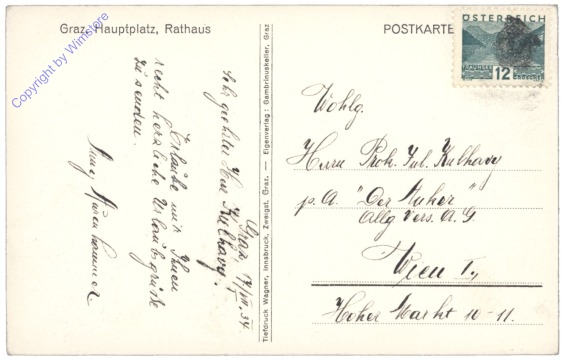 Graz, Hauptplatz, Rathaus
POSTKARTE
ÖSTERREICH
12
Copyright by Wimstore
Graz, 17/VII. 34.
Sehr geehrter Herr Kulhavy!
Erlaube mir Ihnen
recht herzliche Urlaubsgrüße
zu senden.
Tiefdruck Wagner, Innsbruck, Zweigst. Graz. — Eigenverlag: Gambrinuskeller, Graz
Wohlg.
Herrn Prok. Jul. Kulhavy
p. A. "Der Anker"
Allg. Vers. A. G
Wien I.,
Hoher Markt 10-11.